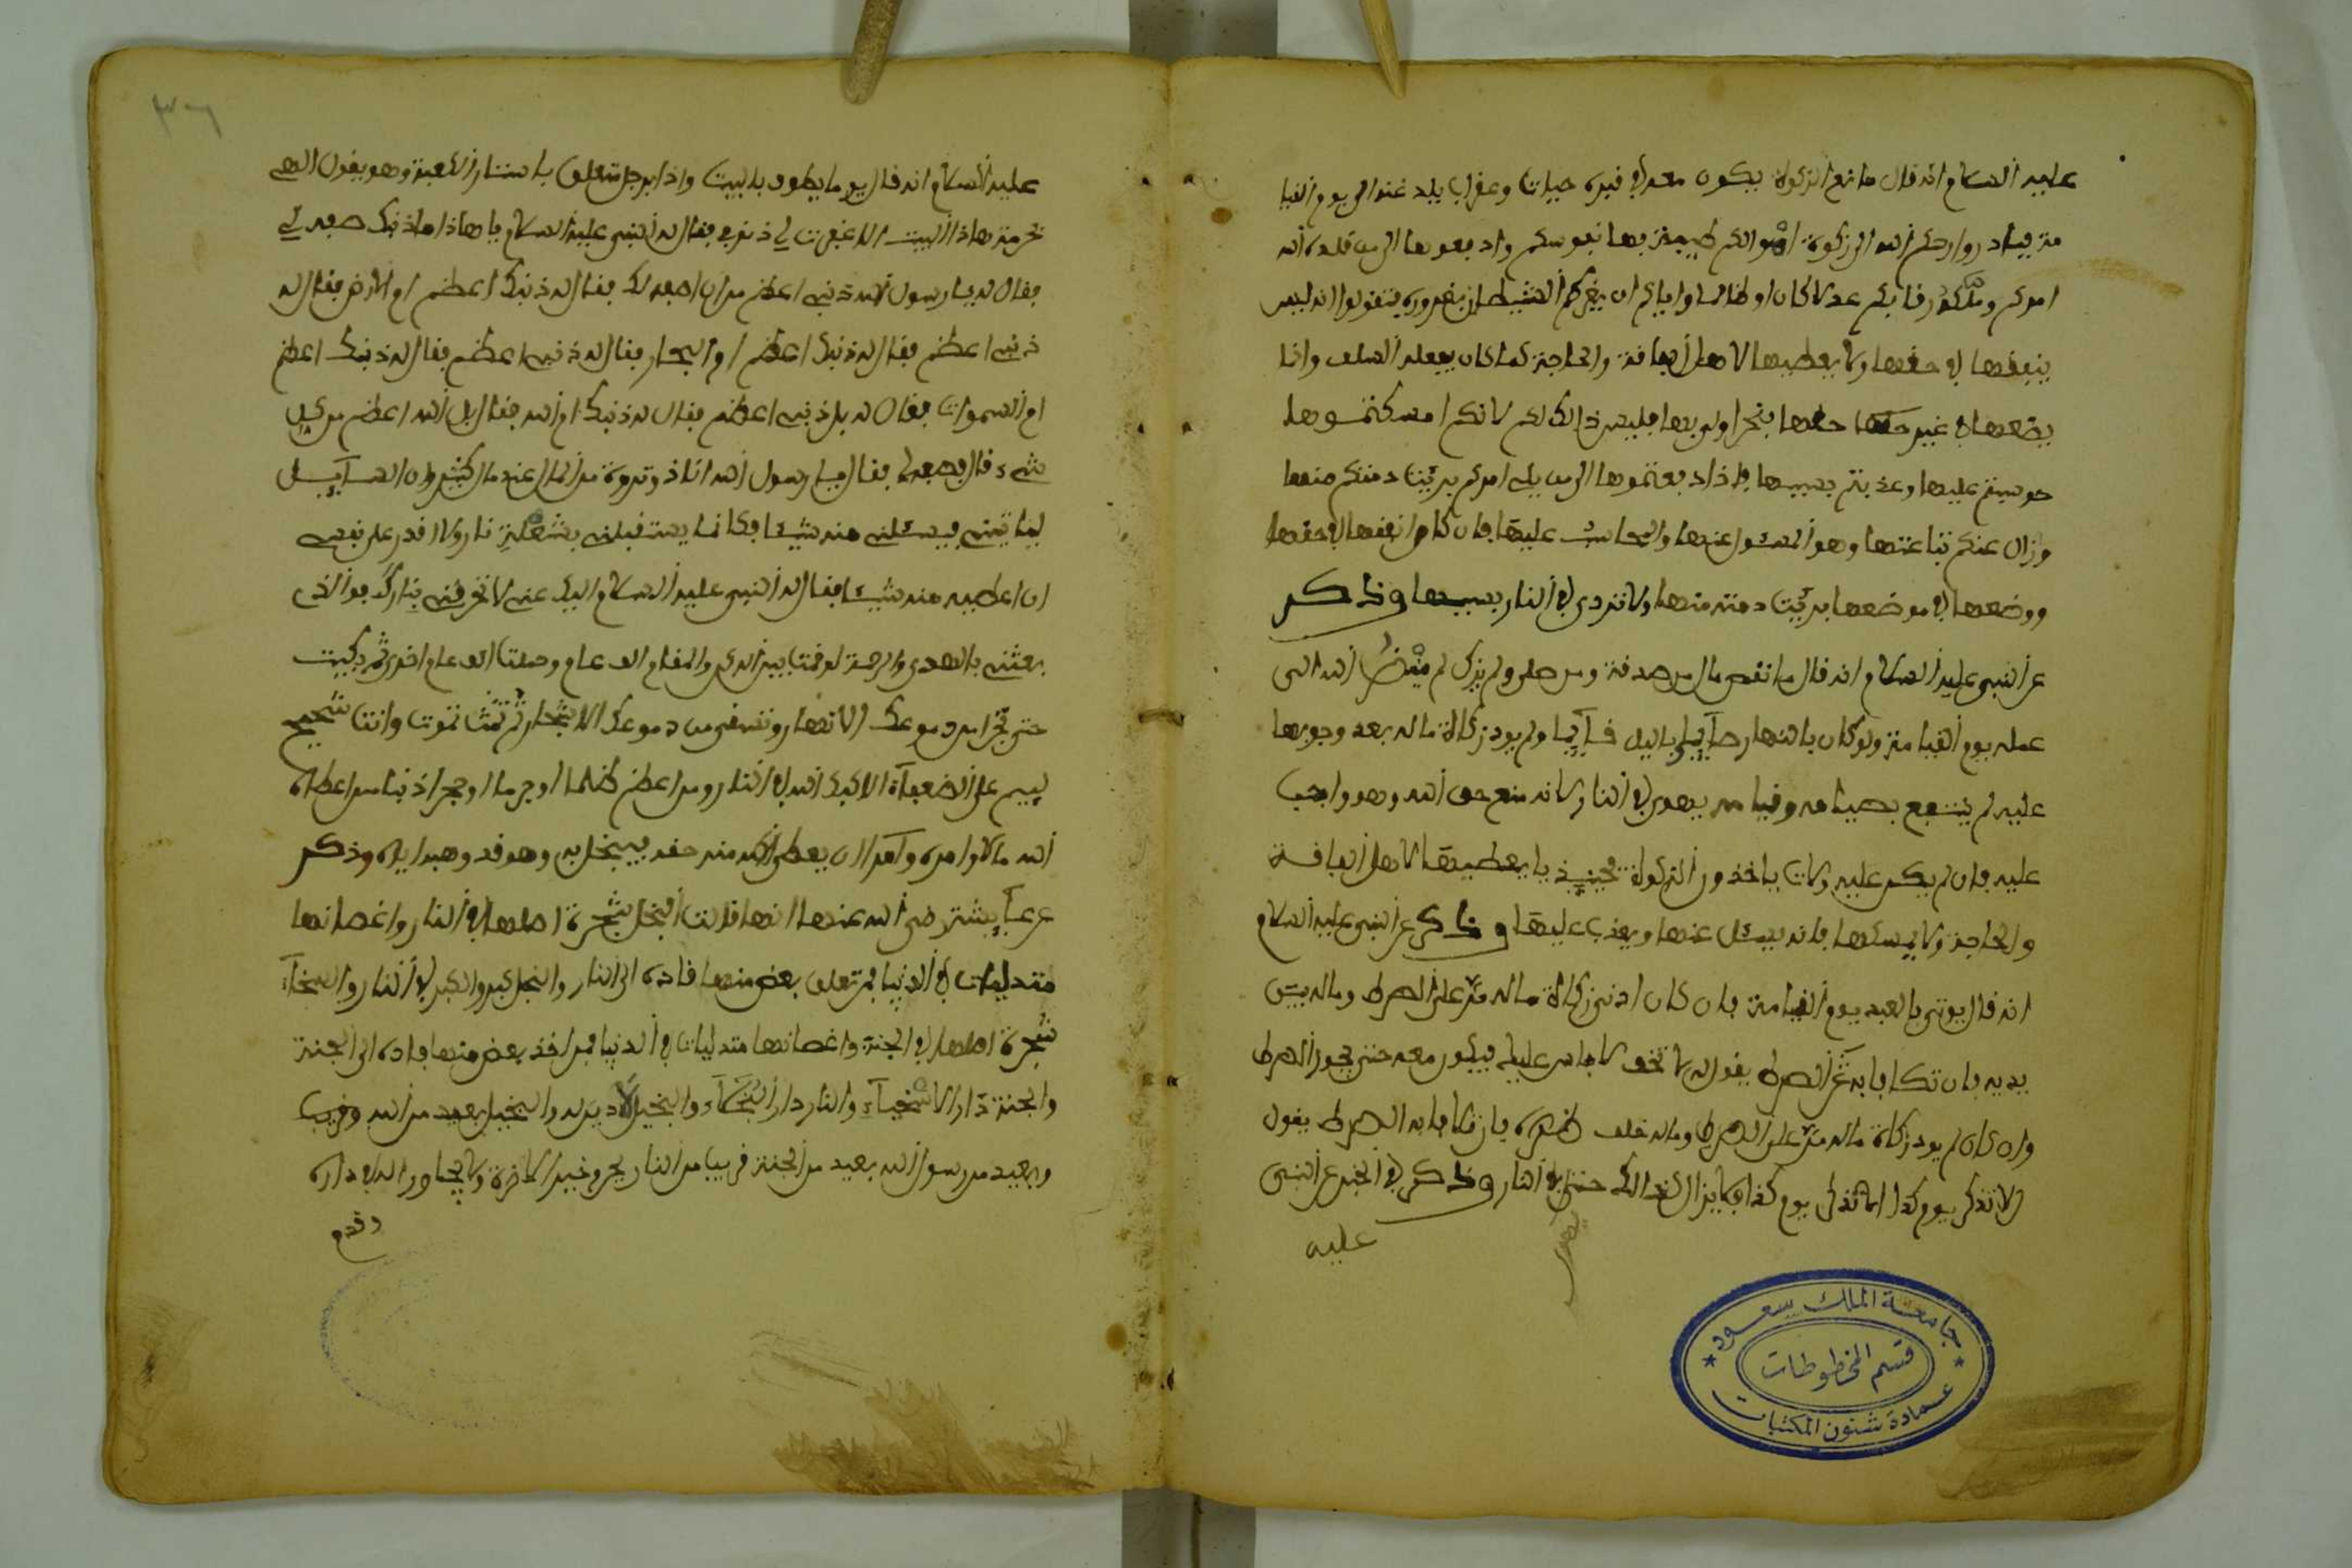 عليه السلام انه قال مانع الزكوة يكون معه في قبره حيات وعقرب يلدغنه الى يوم القيا
مة فبادروا رحمكم الله الى زكوة اموالكم طيبة بها نفوسكم وادفعوها الى من قلده الله
امركم وملكه رقابكم عدلا كان او ظالما واياكم ان يغركم الشيطان بغروره فتقولوا انه ليس
ينفقها في حقها ولا يعطيها لاهل الفاقة والحاجة كما كان يفعله السلف وانما
يضعها في غير حقها فنحن اولى بها فليس ذالك لكم لانكم ان مسكتموها
حوسبتم عليها وعذبتم بسببها واذا دفعتموها الى من يلي امركم بريت ذمتكم منها
وزال عنكم تباعتها وهو المسئول عنها والمحاسب عليها فان كان انفقها في حقها
ووضعها في موضعها بريت ذمته منها ولا تردى في النار بسببها وذكر
عن النبي عليه السلام انه قال ما نقص مال من صدقة ومن صلى ولم يزك لم ينظر الله الى
عمله يوم القيامة ولو كان بالنهار صآيما وباليل قآيما ولم يود زكاة ماله بعد وجوبها
عليه لم ينتفع بصيامه وقيامه يهوي في النار لانه منع حق الله وهو واجب
عليه فان لم يكن عليه ولات ياخذون الزكوة فحينيذ يعطيها لاهل الفاقة
والحاجة ولا يمسكها فانه يسئل عنها ويعذب عليها وذكر عن النبي عليه السلام
انه قال يوتى بالعبد يوم القيامة فان كان ادى زكاة ماله مر على الصرط وماله بين
يديه فان تكافا به عن الصرط يقول له لا تخف لا باس عليك فيكون معه حتى يجوز الصرط
وان كان لم يود زكاة ماله مر على الصرط وماله خلف ظهره فان تكافا به الصرط يقول
الا تذكر يوم كذا اما تذكر يوم كذا فلا يزال كذالك حتى في النار وذكر في الخبر عن النبي
عليه
جامعة الملك سعود
قسم المخطوطات
عمادة شئون المكتبات
٣٦
عليه السلام انه قال يوما يطوف بالبيت واذا برجل متعلق باستار الكعبة وهو يقول الهي
بحرمة هاذا البيت الا غفرت لي ذنوبي فقال له النبي عليه السلام يا هاذا ما ذنبك صفه لي
فقال له يا رسول الله ذنبي اعظم من ان اصفه لك فقال له ذنبك اعظم ام الارض فقال له
ذنبي اعظم فقال له ذنبك اعظم ام البحار فقال له ذنبي اعظم فقال له ذنبك اعظم
ام السموات فقال له بل ذنبي اعظم فقال له ذنبك ام الله فقال بل الله اعظم من كل
شيء قال فصفه لي فقال يا رسول الله انا ذو ثروة من المال عندي مال كثير وان السآيل
لياتيني فيسئلني منه شيئا فكانما يستقبلني بشعلة نار ولا اقدر على نفسي
ان اعطيه منه شيئا فقال له النبي عليه السلام اليك عني لا تحرقني بنارك فو الذي
بعثني بالهدى والرحمة لو قمت بين الركن والمقام الف عام وصليت الف عام اخرى ثم بكيت
حتى تجرا من دموعك الانهار وتسقى من دموعك الاشجار ثم تموت وانت شحيح
لييم على الضعفآء الا كبك الله في النار ومن اعظم ظلما او جرما او جحرا ذنبا من اعطاه
الله مالا وامره ان يعطي منه حقه فيبخل به وهو قد وهبه اياه وذكر
عن عآيشة رضي الله عنها انها قالت البخل شجرة اصلها في النار واغصانها
متدليات في الدنيا فمن تعلق بغصن منها قاده الى النار والبخل كبر والكبر في النار والسخآء
شجرة اصلها في الجنة واغصانها متدليات في الدنيا فمن اخذ بغصن منها قاده الى الجنة
والجنة دار الاسخيآء والنار دار البخلآء والبخيل لا دين له والبخيل بعيد من الله وقريب
وبعيد من رسول الله بعيد من الجنة قريب من النار يجيء في الاخرة ولا يجاور الله في داره
وقدم